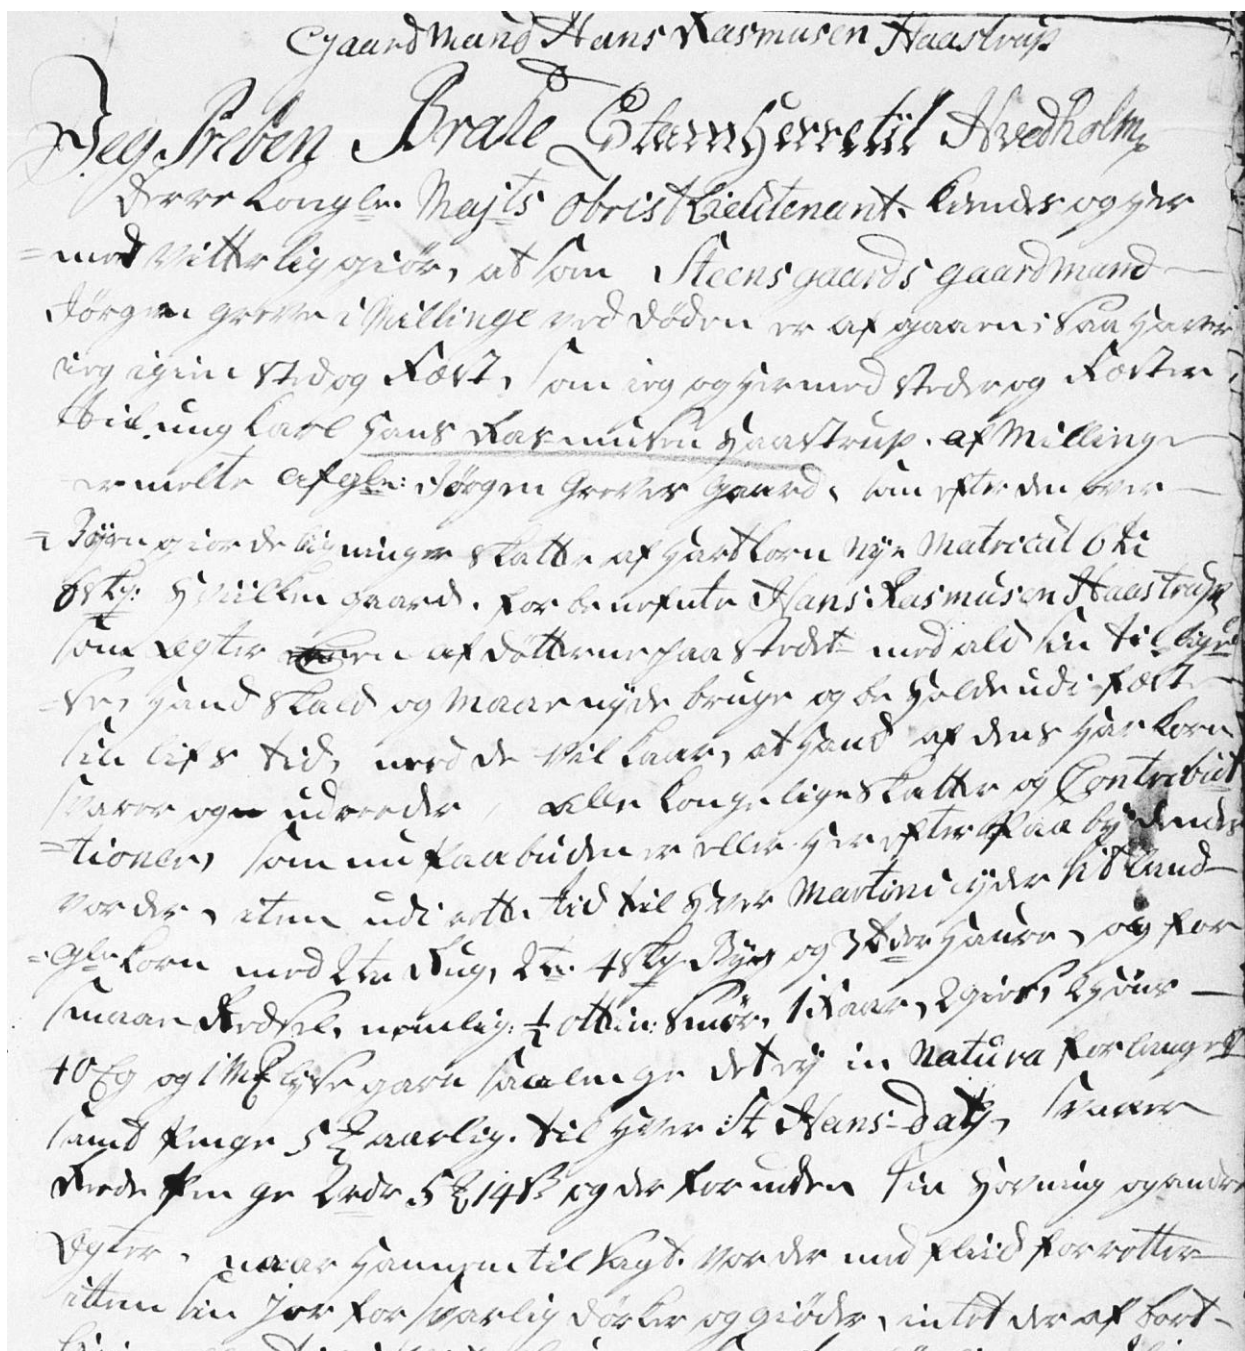 Gaardmand Hans Rasmusen Haastrup
Jeg Preben Brahe Stamherre til Hvedholm,
Derres Kongle. Majts Obrist Lieutenant. Kiendes og her
= med vitterlig giør, at som Steensgaards gaardmand
Jørgen Greve i Millinge ved døden er af gaaen; saa haver
ieg igien sted og Fæst, som ieg og hermed steder og Fæster
til ung Karl Hans Rasmusen Haastrup. af Millinge
ermelte afgle: Jørgen Greves Gaard, som efter den over
= Byen giorde ligninger skatter af Hartkorn Nye Matricul 6 td
skp: Hvilken gaard. forbenefnte Hans Rasmusen Haastrup
som ægter een af døttrene paa stedet med ald sin tilligel
= se, hand skald og maae nyde bruge og beholde udi fæste
sin lifs tid, med de vilkaar, at hand af dens Harkorn
svarer og udreeder, alle Kongelige Skatter og Contribut
= tioner, som nu paabuden er eller herefter paabydendes
vorder, item udi rette tid til hver Martini yder sit Land
= gle Korn med 2 td Rug, 2 td. 4 skp Byg og 3 tder Haure, og for
smaae Redsel, nemlig: ½ otting: Smør, 1 Faar, 2 giess, 2 høns
40 Eg og 1 garn saalenge det ey in Natura forlanges
samt penge 5 aarlig. til hver St Hans-dag, svarer
Rede Penge 2 rdr 5 14 s og der foruden sin Hovning og andre
Ægter, naar hannem tilsagt. vorder med fliid forretter
ittem sin Jor forsvarlig dørker og giøder, intet der af bort-